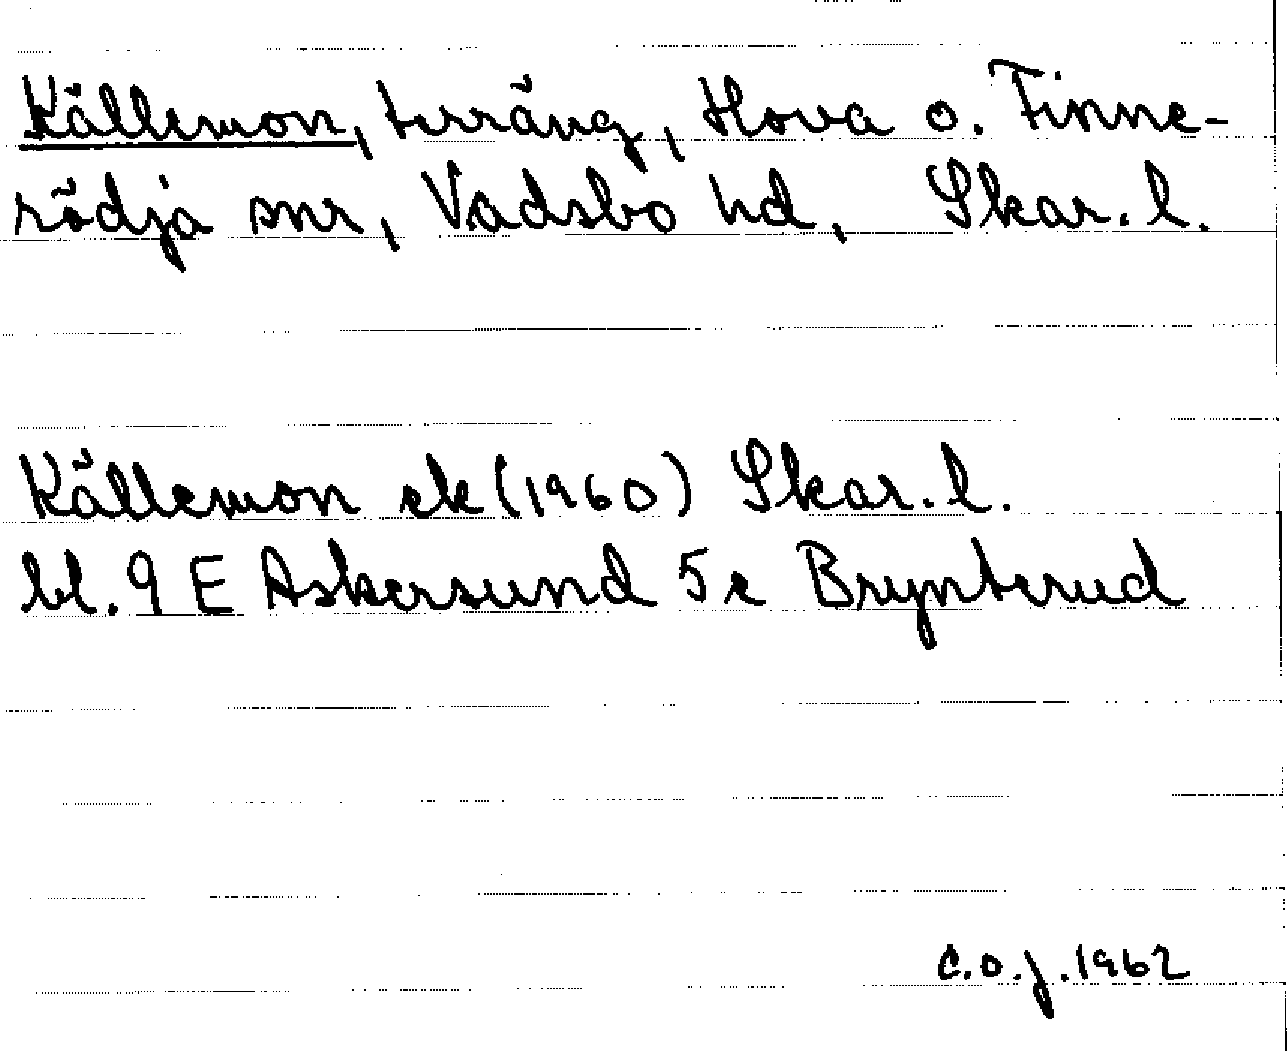 Källemon, terräng, Hova o. Finne-
rödja snr, Vadsbo hd, Skar. l.
Källemon ek (1960) Skar. l.
bl. 9 E Askersund 5 c Brynterud
C.O.J. 1962